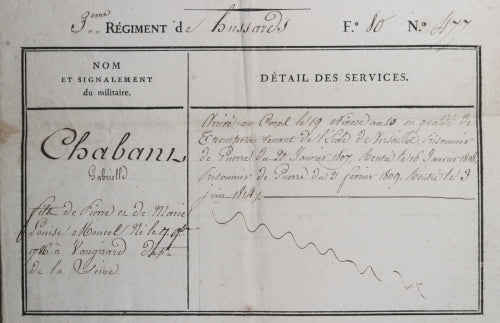 3.ème RÉGIMENT de hussards F.° 80 N.° 477
NOM
ET SIGNALEMENT
du militaire.
DÉTAIL DES SERVICES.
Chabans
Gabrielle
fils de Pierre et de Marie
Louise Moncel Né le 17 9bre
1786 à Vaugirard Dépt
de la Seine
Arrivé au Corps le 19 Nivose an 10 en qualité de
Trompette venant de l'Ecole de Versailles Prisonnier
de Guerre du 25 Janvier 1807 Rentré le 16 Janvier 1808,
Prisonnier de Guerre du 21 février 1809, Rentré le 3
juin 1814